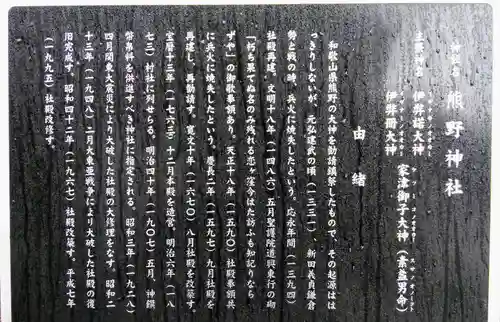 神社名 熊野神社
主祭神名 伊弉諾大神 家津御子大神（素盞男命）
伊弉冊大神
由緒
和歌山県熊野の大神を勧請鎮祭したもので、その起源ははっ
きりしないが、元弘建武の頃（一三三一）、新田義貞鎌倉
勢と戦の時、兵火に焼失したという。応永年間（一三九四）
社殿再建。文明十八年（一四八六）五月聖護院道興東行の砌
「朽ち果てぬ名のみ残れる恋ヶ窪今はた訪ふも知記りなら
ずや」の御歌奉額あり。天正十八年（一五九〇）社殿奉額共
に兵火に焼失したという。慶長二年（一五九七）九月社殿を
再建し、再勧請す。寛文十年（一六七〇）八月社殿を改築す。
宝暦十三年（一七六三）十二月本殿を造営。明治六年（一八
七三）村社に列せらる。明治四十年（一九〇七）五月 神饌
幣帛料を供進すべき神社に指定される。昭和三年（一九二八）
四月関東大震災により大破した社殿の大修理をなす。昭和二
十三年（一九四八）二月大東亜戦争により大破した社殿の復
旧完成す。昭和四十二年（一九六七）社殿改築す。平成七年
（一九九五）社殿改修す。